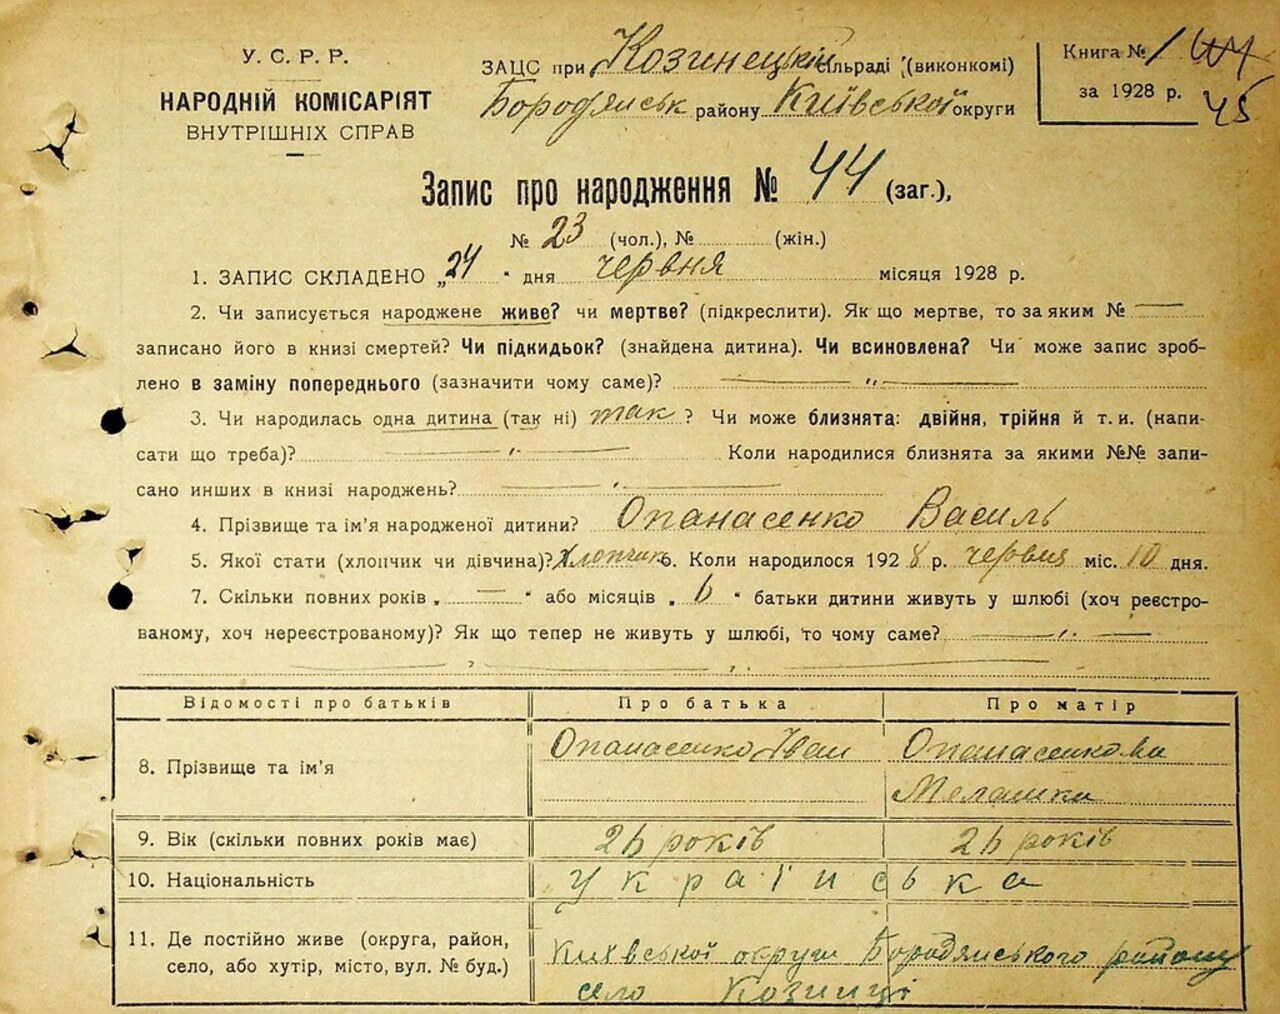 У. С. Р. Р.
НАРОДНІЙ КОМІСАРІЯТ
ВНУТРІШНІХ СПРАВ
ЗАЦС при Козинецькій сільраді (виконкомі)
Бородянськ району Київської округи
Книга № 1 44
за 1928 р. 45
Запис про народження № 44 (заг.),
№ 23 (чол.), № (жін.)
1. ЗАПИС СКЛАДЕНО „24" дня червня місяця 1928 р.
2. Чи записується народжене живе? чи мертве? (підкреслити). Як що мертве, то за яким № —
записано його в книзі смертей? Чи підкидьок? (знайдена дитина). Чи всиновлена? Чи може запис зроб-
лено в заміну попереднього (зазначити чому саме)? — " —
3. Чи народилась одна дитина (так ні) так ? Чи може близнята: двійня, трійня й т. и. (напи-
сати що треба)? — " — Коли народилися близнята за якими №№ запи-
сано инших в книзі народжень? — " —
4. Прізвище та ім'я народженої дитини? Опанасенко Василь
5. Якої стати (хлопчик чи дівчина)? Хлопчик 6. Коли народилося 1928 р. червня міс. 10 дня.
7. Скільки повних років „ — " або місяців „ 6 " батьки дитини живуть у шлюбі (хоч реєстро-
ваному, хоч нереєстрованому)? Як що тепер не живуть у шлюбі, то чому саме? — " —
— " — " —
Відомості про батьків Про батька Про матір
8. Прізвище та ім'я Опанасенко Іван Опанасенкова
Мелашка
9. Вік (скільки повних років має) 26 років 26 років
10. Національність Українська
11. Де постійно живе (округа, район, Київської округи Бородянського району
село, або хутір, місто, вул. № буд.) село Козинці